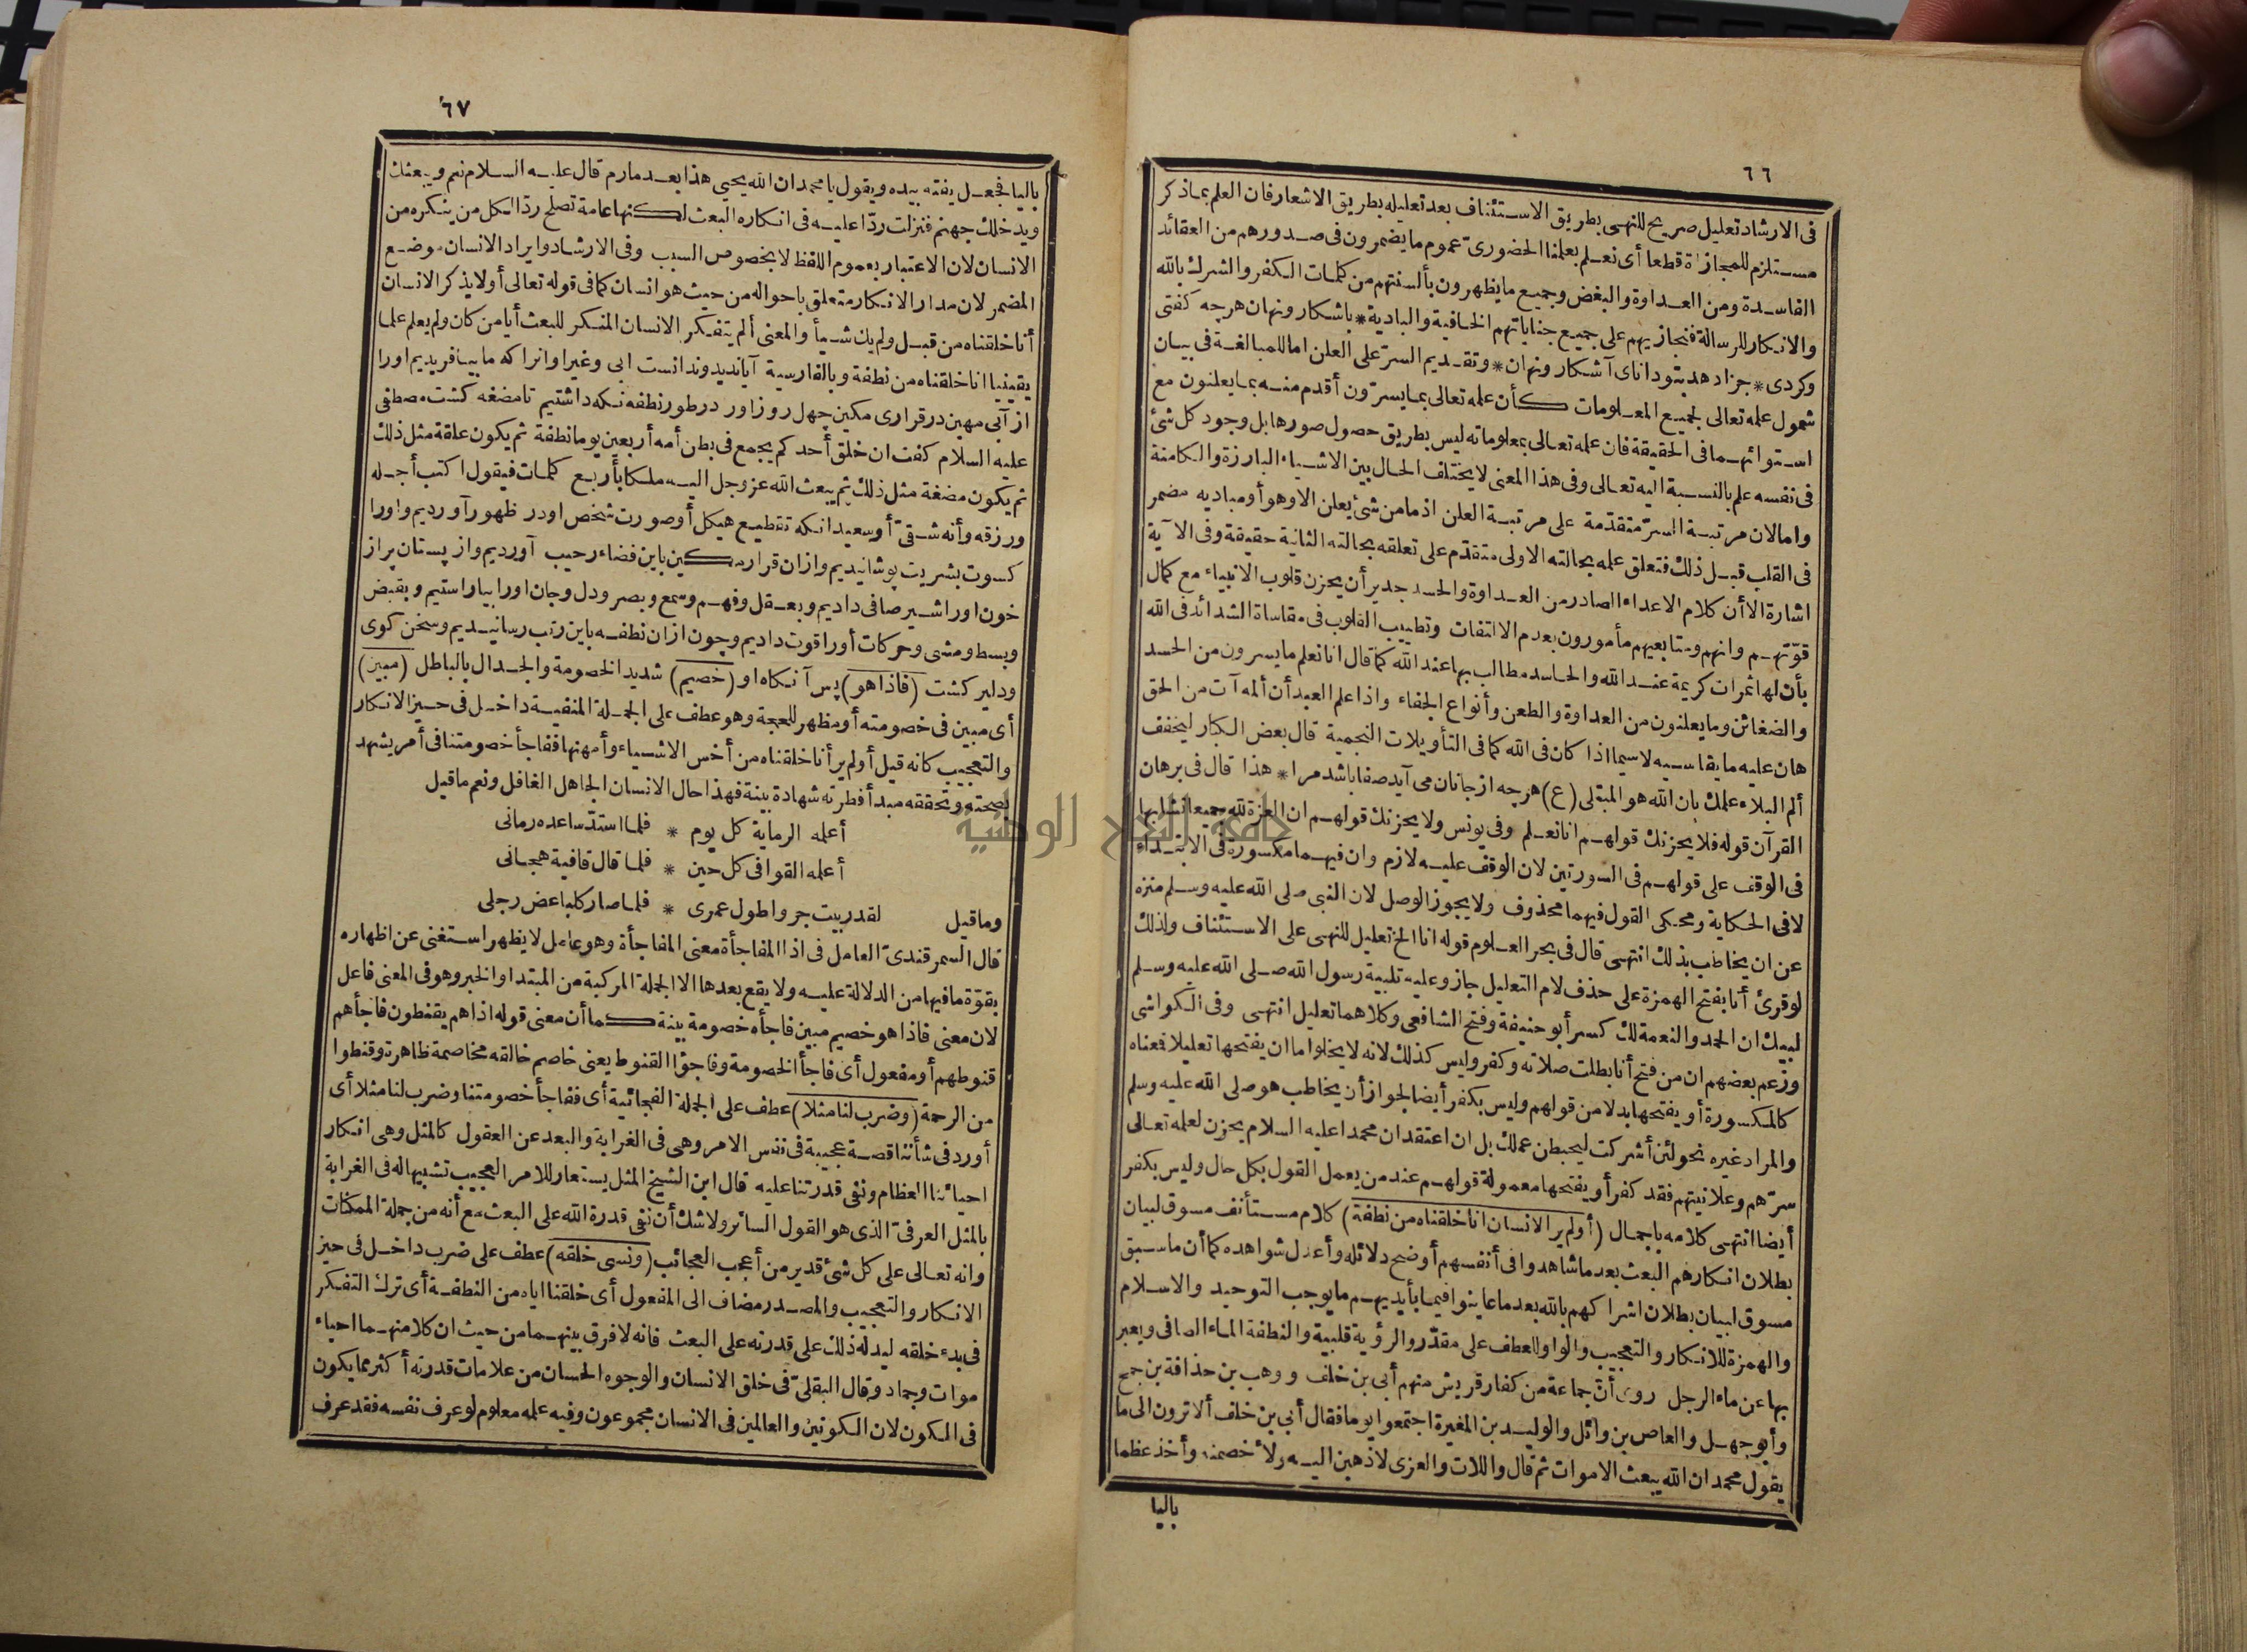 ٦٦
فى الارشاد تعليل صريح للنهى بطريق الاستئناف بعد تعليله بطريق الاشعار فان العلم بما ذكر
مستلزم للمجازاة قطعا أى نعلم بعلمنا الحضورى عموم ما يضمرون فى صدورهم من العقائد
الفاسدة ومن العداوة والبغض وجميع ما يظهرون بألسنتهم من كلمات الكفر والشرك بالله
والانكار للرسالة فنجازيهم على جميع جناياتهم الخافية والبادية * باشكار ونهان هرچه كفتى
وكردى * جزا دهد بتو داناى آشكار ونهان * وتقديم السر على العلن اما للمبالغة فى بيان
شمول علمه تعالى لجميع المعلومات كأن علمه تعالى بما يسرون أقدم منه بما يعلنون مع
استوائهما فى الحقيقة فان علمه تعالى بمعلوماته ليس بطريق حصول صورها بل وجود كل شئ
فى نفسه علم بالنسبة اليه تعالى وفى هذا المعنى لا يختلف الحال بين الاشياء البارزة والكامنة
واما لان مرتبة السر متقدمة على مرتبة العلن اذ ما من شئ يعلن الا وهو أو مباديه مضمر
فى القلب قبل ذلك فتعلق علمه بحالته الاولى متقدم على تعلقه بحالته الثانية حقيقة وفى الآية
اشارة الا أن كلام الاعداء الصادر من العداوة والحسد جدير أن يحزن قلوب الانبياء مع كمال
قوتهم وانهم ومتابعيهم مأمورون بعدم الالتفات وتطييب القلوب فى مقاساة الشدائد فى الله
بأن لها ثمرات كريمة عند الله والحاسد مطالب بها عند الله كما قال انا نعلم ما يسرون من الحسد
والضغائن وما يعلنون من العداوة والطعن وأنواع الجفاء واذا علم العبد أن ألمه آت من الحق
هان عليه ما يقاسيه لا سيما اذا كان فى الله كما فى التأويلات النجمية قال بعض الكبار ليخفف
ألم البلاء علمك بان الله هو المبتلى (ع) هرچه از جانان مى آيد صفا باشد مرا * هذا قال فى برهان
القرآن قوله فلا يحزنك قولهم انا نعلم وفى يونس ولا يحزنك قولهم ان العزة لله جميعا تشابها
فى الوقف على قولهم فى السورتين لان الوقف عليه لازم وان فيهما مكسورة فى الابتداء
لا فى الحكاية ومحكى القول فيهما محذوف ولا يجوز الوصل لان النبى صلى الله عليه وسلم منزه
عن ان يخاطب بذلك انتهى قال فى بحر العلوم قوله انا الخ تعليل للنهى على الاستئناف ولذلك
لو قرئ أنا بفتح الهمزة على حذف لام التعليل جاز وعليه تلبية رسول الله صلى الله عليه وسلم
لبيك ان الحمد والنعمة لك كسر أبو حنيفة وفتح الشافعى وكلاهما تعليل انتهى وفى الكواشى
وزعم بعضهم ان من فتح أنا بطلت صلاته وكفر وليس كذلك لانه لا يخلوا ما ان يفتحها تعليلا فعناه
كالمكسورة أو يفتحها بدلا من قولهم وليس بكفر أيضا لجواز أن يخاطب هو صلى الله عليه وسلم
والمراد غيره نحو لئن أشركت ليحبطن عملك بل ان اعتقد ان محمدا عليه السلام يحزن لعلمه تعالى
سرهم وعلانيتهم فقد كفر أو يفتحها معمولة قولهم عند من يعمل القول بكل حال وليس بكفر
أيضا انتهى كلامه باجمال (أولم ير الانسان انا خلقناه من نطفة) كلام مستأنف مسوق لبيان
بطلان انكارهم البعث بعد ما شاهدوا فى أنفسهم أوضح دلائله وأعدل شواهده كما أن ما سبق
مسوق لبيان بطلان اشراكهم بالله بعد ما عاينوا فيما بأيديهم ما يوجب التوحيد والاسلام
والهمزة للانكار والتعجيب والواو للعطف على مقدر والرؤية قلبية والنطفة الماء الصافى ويعبر
بها عن ماء الرجل روى أن جماعة من كفار قريش منهم أبى بن خلف ووهب بن حذافة بن جمح
وأبو جهل والعاص بن وائل والوليد بن المغيرة اجتمعوا يوما فقال أبى بن خلف ألا ترون الى ما
يقول محمد ان الله يبعث الاموات ثم قال واللات والعزى لاذهبن اليه ولأخصمنه وأخذ عظما
باليا
٦٧
باليا فجعل يفته بيده ويقول يا محمد ان الله يحيى هذا بعد ما رم قال عليه السلام نعم ويبعثك
ويدخلك جهنم فنزلت ردا عليه فى انكاره البعث لكنها عامة تصلح ردا لكل من ينكره من
الانسان لان الاعتبار بعموم اللفظ لا بخصوص السبب وفى الارشاد وايراد الانسان موضع
المضمر لان مدار الانكار متعلق باحواله من حيث هو انسان كما فى قوله تعالى أولا يذكر الانسان
أنا خلقناه من قبل ولم يك شيأ والمعنى ألم يتفكر الانسان المنكر للبعث أيا من كان ولم يعلم علما
يقينيا انا خلقناه من نطفة وبالفارسية آيا نديد وندانست ابى وغير او انرا كه ما بيافريديم اورا
از آبى مهين در قرارى مكين چهل روز اور در طور نطفه نكه داشتيم تا مضغه كشت مصطفى
عليه السلام كفت ان خلق أحدكم يجمع فى بطن أمه أربعين يوما نطفة ثم يكون علقة مثل ذلك
ثم يكون مضغة مثل ذلك ثم يبعث الله عز وجل اليه ملكا بأربع كلمات فيقول اكتب أجله
ورزقه وأنه شقى أو سعيد انكه تقطيع هيكل أو صورت شخص او در ظهور آورديم واورا
كسوت بشريت پوشانيديم واز ان قرار مكين باين فضاء رحيب آورديم واز پستان پر از
خون اورا شير صافى داديم وبعقل وفهم وسمع وبصر ودل وجان اورا بياراستيم وبقبض
وبسط ومشى وحركات أورا قوت داديم وچون ازان نطفه باين رتب رسانيديم وسخن كوى
ودلير كشت (فاذا هو) پس آنكاه او (خصيم) شديد الخصومة والجدال بالباطل (مبين)
أى مبين فى خصومته أو مظهر للحجة وهو عطف على الجملة المنفية داخل فى حيز الانكار
والتعجيب كانه قيل أولم ير أنا خلقناه من أخس الاشياء وأمهنها ففاجأ خصومتنا فى أمر يشهد
بصحته وتحققه مبدأ فطرته شهادة بينة فهذا حال الانسان الجاهل الغافل ونعم ما قيل
أعلمه الرماية كل يوم * فلما استد ساعده رمانى
أعلمه القوافى كل حين * فلما قال قافية هجانى
وما قيل لقد ربيت جروا طول عمرى * فلما صار كلبا عض رجلى
قال السمرقندى العامل فى اذا المفاجأة معنى المفاجأة وهو عامل لا يظهر استغنى عن اظهاره
بقوة ما فيها من الدلالة عليه ولا يقع بعدها الا الجملة المركبة من المبتدا والخبر وهو فى المعنى فاعل
لان معنى فاذا هو خصيم مبين فاجأه خصومة بينة كما أن معنى قوله اذا هم يقنطون فاجأهم
قنوطهم أو مفعول أى فاجأ الخصومة وفاجؤا القنوط يعنى خاصم خالقه مخاصمة ظاهرة وقنطوا
من الرحمة (وضرب لنا مثلا) عطف على الجملة الفجائية أى ففاجأ خصومتنا وضرب لنا مثلا أى
أورد فى شأننا قصة عجيبة فى نفس الامر وهى فى الغرابة والبعد عن العقول كالمثل وهى انكار
احيائنا العظام ونفى قدرتنا عليه قال ابن الشيخ المثل يستعار للامر العجيب تشبيها له فى الغرابة
بالمثل العرفى الذى هو القول السائر ولا شك أن نفى قدرة الله على البعث مع أنه من جملة الممكنات
وانه تعالى على كل شئ قدير من أعجب العجائب (ونسى خلقه) عطف على ضرب داخل فى حيز
الانكار والتعجيب والمصدر مضاف الى المفعول أى خلقنا اياه من النطفة أى ترك التفكر
فى بدء خلقه ليدله ذلك على قدرته على البعث فانه لا فرق بينهما من حيث ان كلا منهما احياء
موات وجماد وقال البقلى فى خلق الانسان والوجوه الحسان من علامات قدرته أكثر مما يكون
فى المكون لان الكونين والعالمين فى الانسان مجموعون وفيه علمه معلوم لو عرف نفسه فقد عرف
جامعة النجاح الوطنية